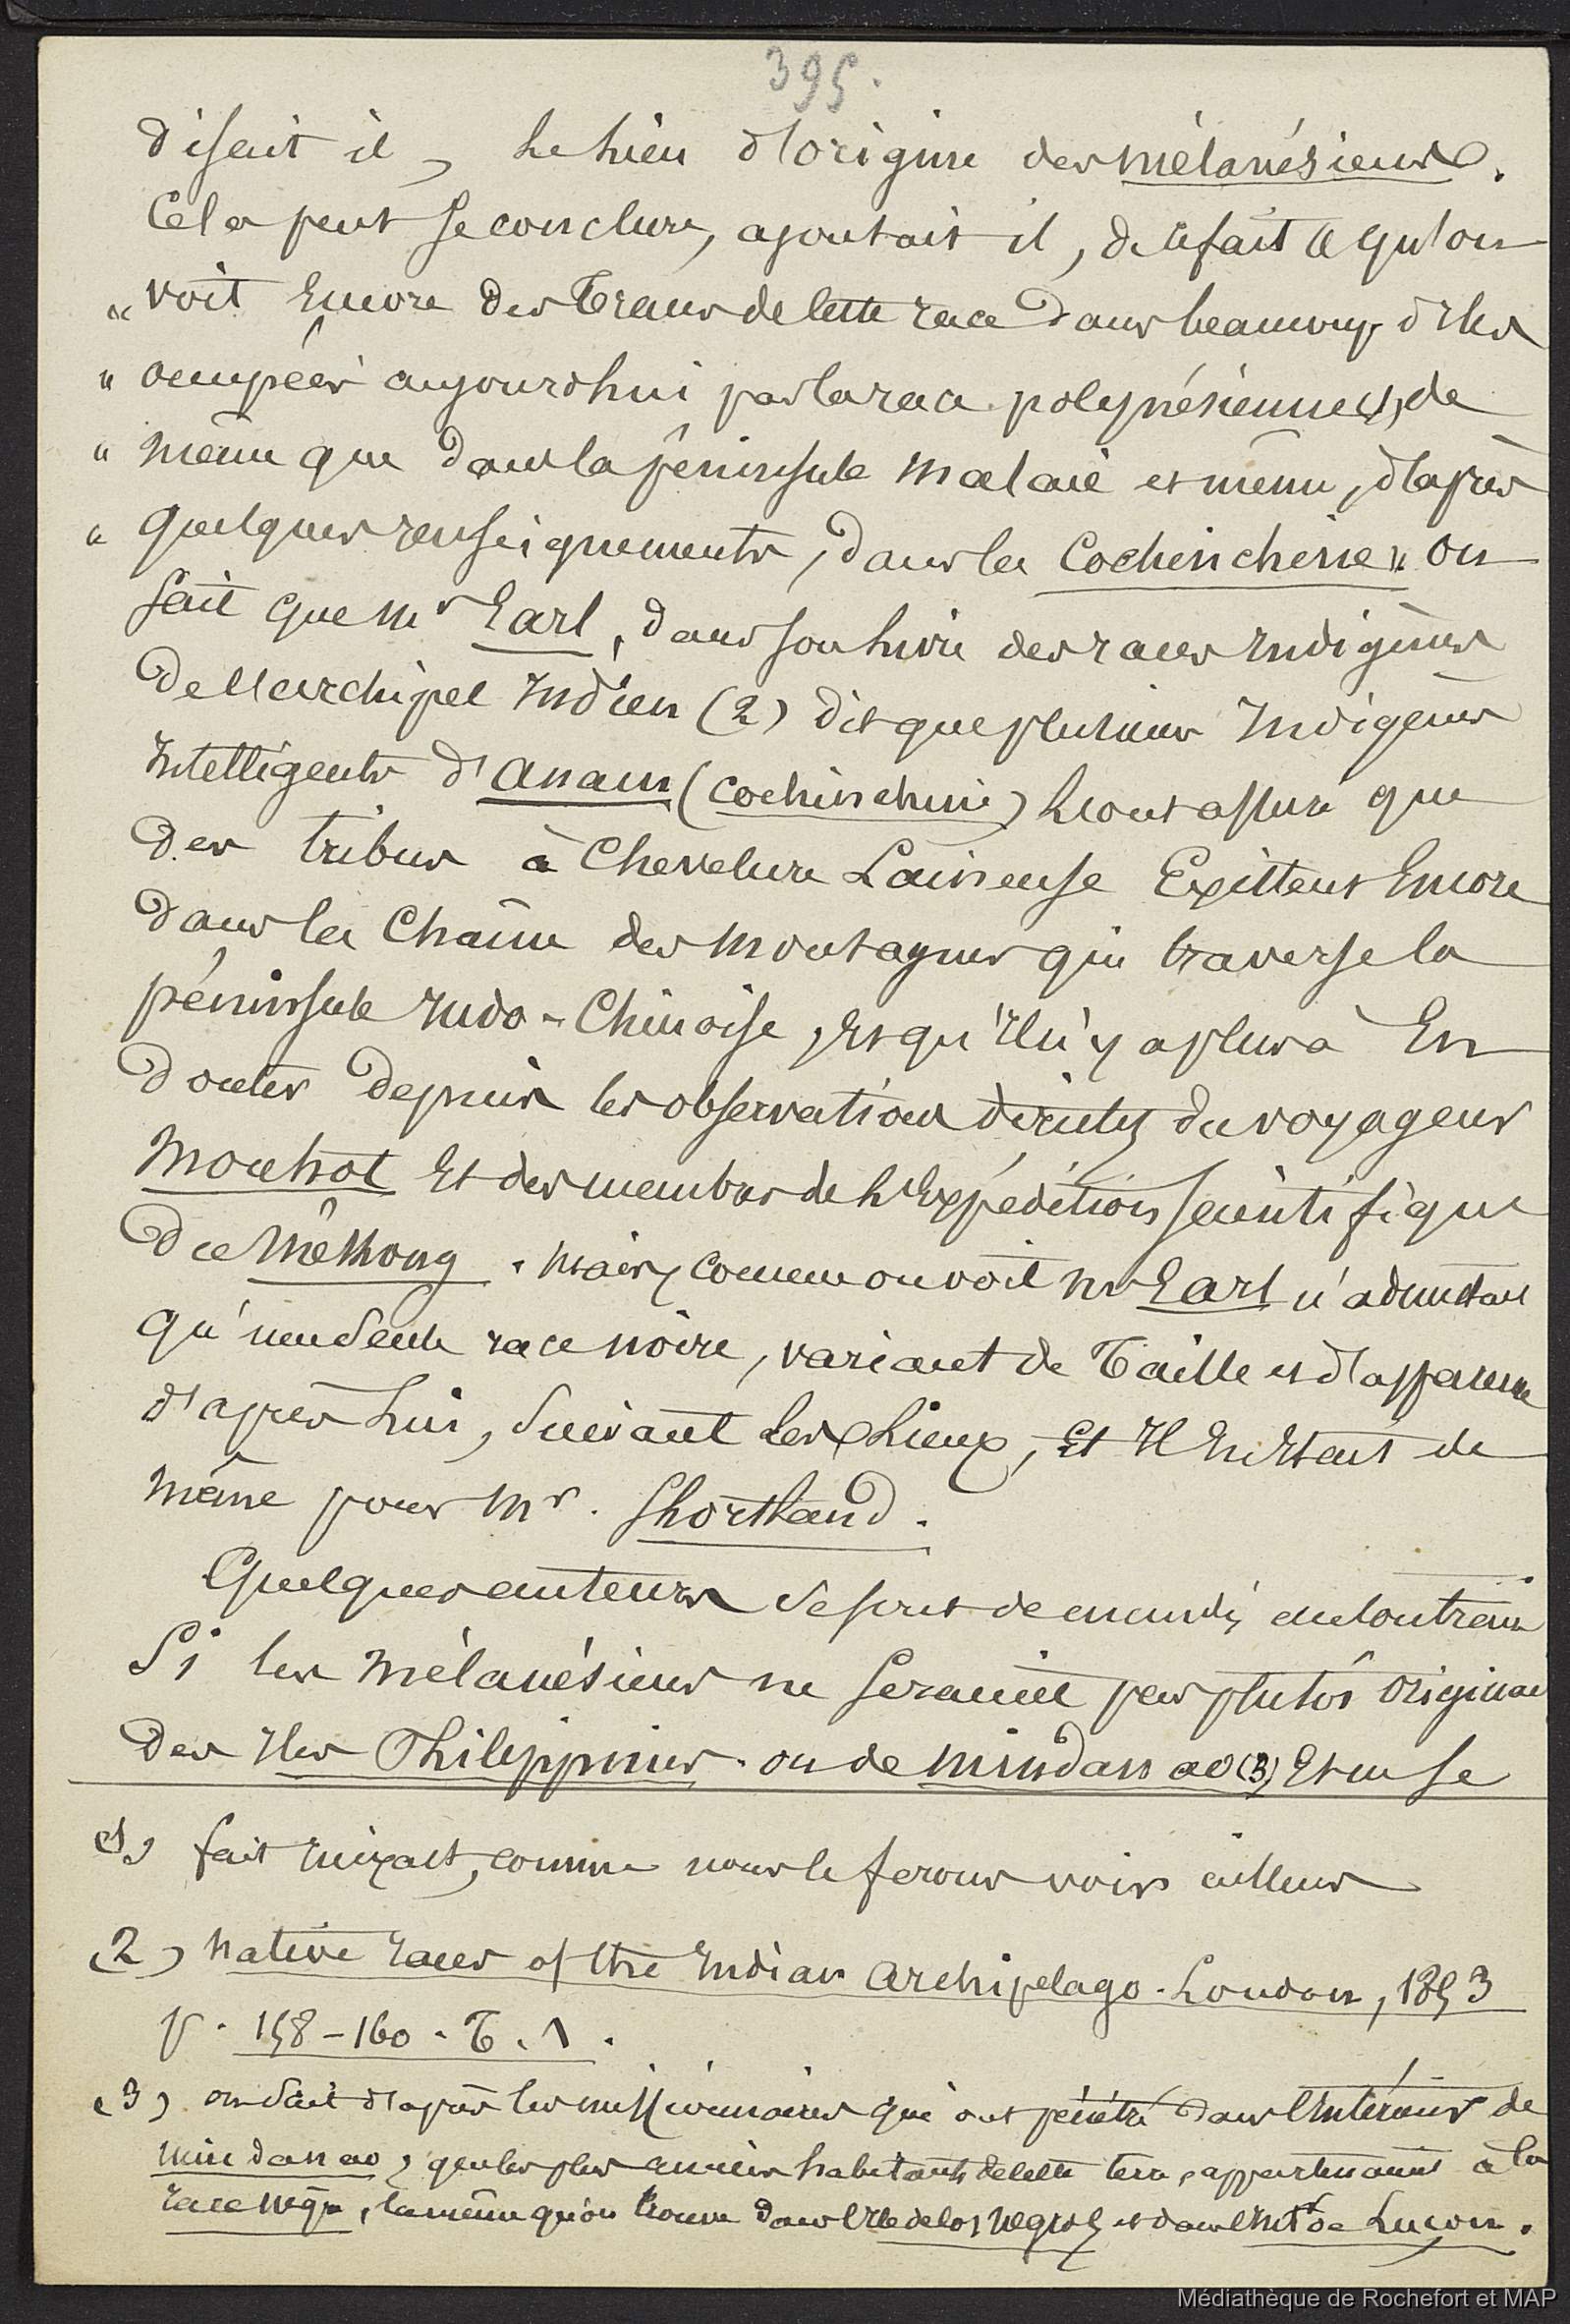 395.
disait il, le lieu d'origine des mélanésiens.
Cela peut se conclure, ajoutait il, de ce fait qu'on
" voit encore des traces de cette race dans beaucoup d'iles
" occupées aujourdhui par la race polynésienne (1), de
" même que dans la péninsule malaie et même, d'après
" quelques renseignements, dans la Cochinchine ". On
sait que Mr Earl, dans son livre des races indigènes
de l'archipel Indien (2) dit que plusieurs indigènes
intelligents d'Anam (Cochinchine) l'ont assuré que
des tribus à chevelure laineuse existent encore
dans la chaîne des montagnes qui traverse la
péninsule indo-Chinoise, et qu'il n'y a plus à en
douter depuis les observations directes du voyageur
Mouhot et des membres de l'expédition scientifique
du Mékong. Mais, comme on voit Mr Earl n'admettait
qu'une seule race noire, variant de taille et d'apparence
d'après lui, suivant les lieux, et il en était de
même pour Mr. Shortland.
Quelques auteurs se sont demandés au contraire
si les Mélanésiens ne seraient pas plutôt originaires
des iles Philippines ou de Mindanao (3) et ce se
(1) fait inexact, comme nous le ferons voir ailleurs
(2) native races of the indian archipelago. London, 1853
p. 158-160. T. 1.
(3) on sait d'après les missionnaires qui ont pénétré dans l'intérieur de
Mindanao, que les plus anciens habitants de cette terre appartenaient à la
race nègre, la même qu'on trouve dans l'ile de los Negros et dans l'intr de Luçon.
Médiathèque de Rochefort et MAP